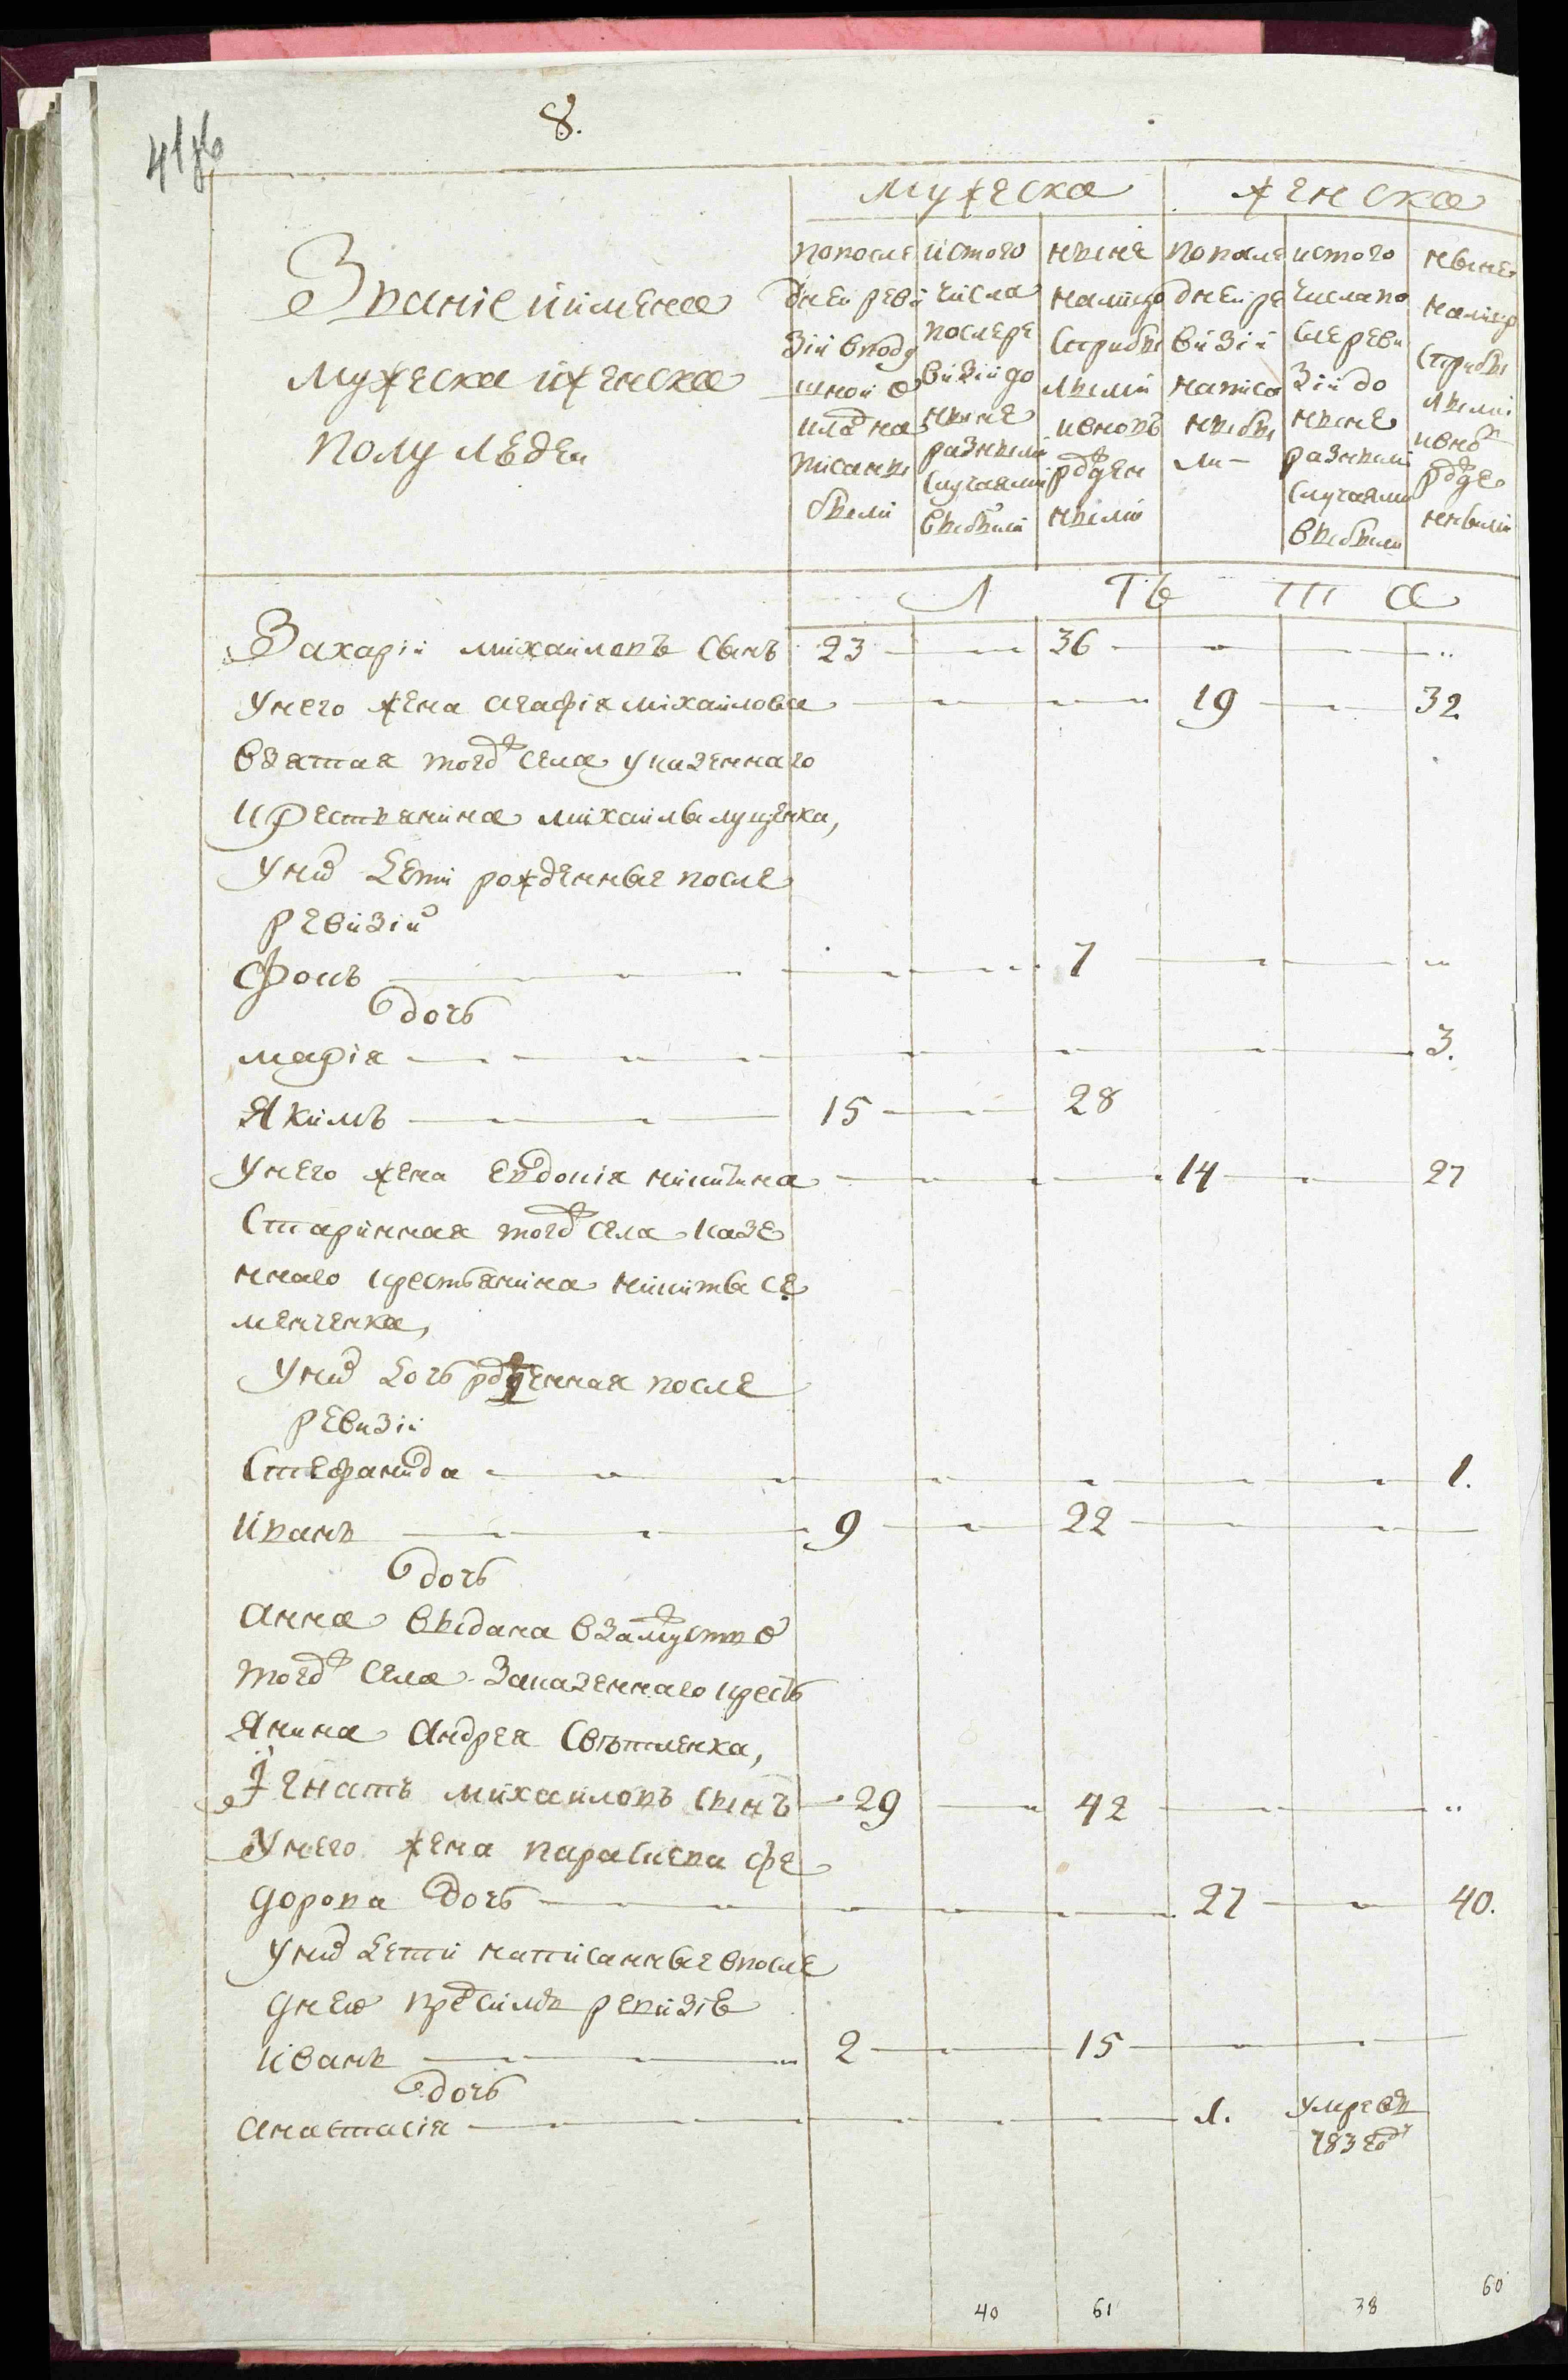 41об
8.
Званіе иимена
мужеска иженска
полу людеи
мужеска
женска
попосле
днеи реви
зіи вподу
шнои о
кладъ на
писаны
были
истого
числа
послере
визіи до
ныне
разными
случаями
выбыли
ныне
налицо
сприбы
лыми
ивновь
рожден
ными
попосле
днеи ре
визіи
написа
ны бы
ли
истого
числапо
слереви
зіи до
ныне
разными
случаями
выбыли
ныне
налицо
сприбы
лыми
ивновь
рожде
нными
Л Ѣ Т А
Захаріи михаиловъ сынъ 23 36
Унего жена агафія михаилова 19 32
взятая тогожъ села указеннаго
крестьянина михаилы луценка,
Унихъ дети рожденные после
ревизіи
Фокъ 7
дочь
марія 3.
Якимъ 15 28
Унего жена евдокія никитина 14 27
старинная тогожъ села казе
ннаго крестьянина никиты се
менченка,
Унихъ дочь рожденная после
ревизіи
Стефанида 1.
Иванъ 9 22
дочь
анна выдана взамужство
тогожъ села законеннаго кресть
янина Андрея Светленка,
Игнатъ михаиловъ сынъ 29 42
Унего жена параскева фе
дорова дочь 27 40.
Унихъ дети написанные впосле
днею пред симъ ревизію
Иванъ 2 15
дочь
анастасія 1. умре въ
783 году
40 61 38 60